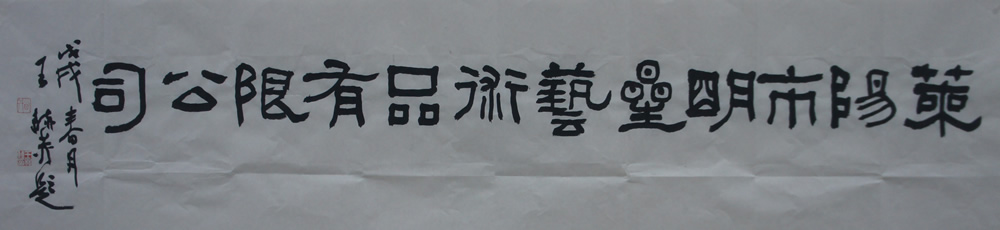 萊陽市明壘藝術品有限公司
戊戌春月
王 題